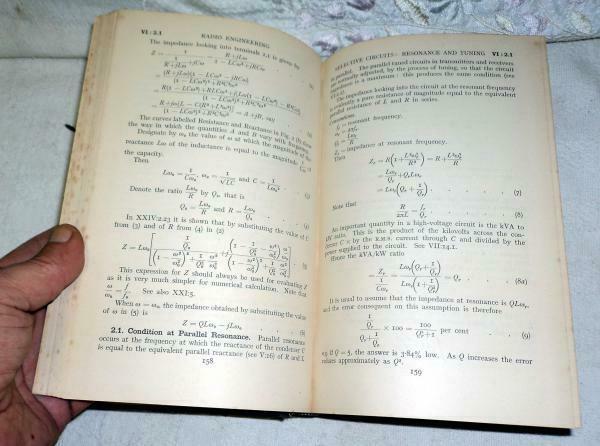 VI : 2.1 RADIO ENGINEERING
The impedance looking into terminals AA is given by
Z = 1 / (1/(R+jLω) + jCω) = (R+jLω) / (1 − LCω² + jRCω)
= (R+jLω)(1 − LCω² − jRCω) / ((1 − LCω²)² + R²C²ω²)
= A + jB, say
The curves labelled Resistance and Reactance in Fig. show
the way in which the quantities A and B vary with frequency.
Designate by ω₀ the value of ω at which the magnitude of the
reactance Lω of the inductance is equal to the magnitude of
the capacity.
Then
Lω₀ = 1/Cω₀, ω₀ = 1/√LC and C = 1/Lω₀²
Denote the ratio Lω₀/R by Q₀, that is
Q₀ = Lω₀/R and R = Lω₀/Q₀
In XXIV:2.23 it is shown that by substituting the value of
from (3) and of R from (4) in (2)
This expression for Z should always be used for evaluating Z
as it is very much simpler for numerical calculation. Note that
ω/ω₀ = f/f₀. See also XXI:5.
When ω = ω₀, the impedance obtained by substituting the value
of ω in (5) is
Z = QLω₀ − jLω₀ (6)
2.1. Condition at Parallel Resonance. Parallel resonance
occurs at the frequency at which the reactance of the condenser C
is equal to the equivalent parallel reactance (see V:16) of R and L
158
SELECTIVE CIRCUITS: RESONANCE AND TUNING VI:2.1
in parallel. The parallel tuned circuits in transmitters and receivers
are normally adjusted, by the process of tuning, so that the circuit
impedance is a maximum: this produces the same condition (see
The impedance looking into the circuit at the resonant frequency
is evidently a pure resistance of magnitude equal to the equivalent
parallel resistance of L and R in series.
= resonant frequency.
= impedance at resonant frequency.
Then
Zᵣ = R(1 + L²ωᵣ²/R²) = R + L²ωᵣ²/R
= Lωᵣ/Qᵣ + QᵣLωᵣ
= Lωᵣ(Qᵣ + 1/Qᵣ) (7)
Note that
R/2πL = fᵣ/Qᵣ (8)
An important quantity in a high-voltage circuit is the kVA to
kW ratio. This is the product of the kilovolts across the con-
denser C × by the R.M.S. current through C and divided by the
power supplied to the circuit. See VII:14.1.
Hence the kVA/kW ratio
= Qᵣ (8a)
It is usual to assume that the impedance at resonance is QLωᵣ,
and the error consequent on this assumption is therefore
(1/Qᵣ)/(Qᵣ + 1/Qᵣ) × 100 = 100/(Qᵣ² + 1) per cent (9)
e.g. if Q = 5, the answer is 3·84% low. As Q increases the error
reduces approximately as Q².
159